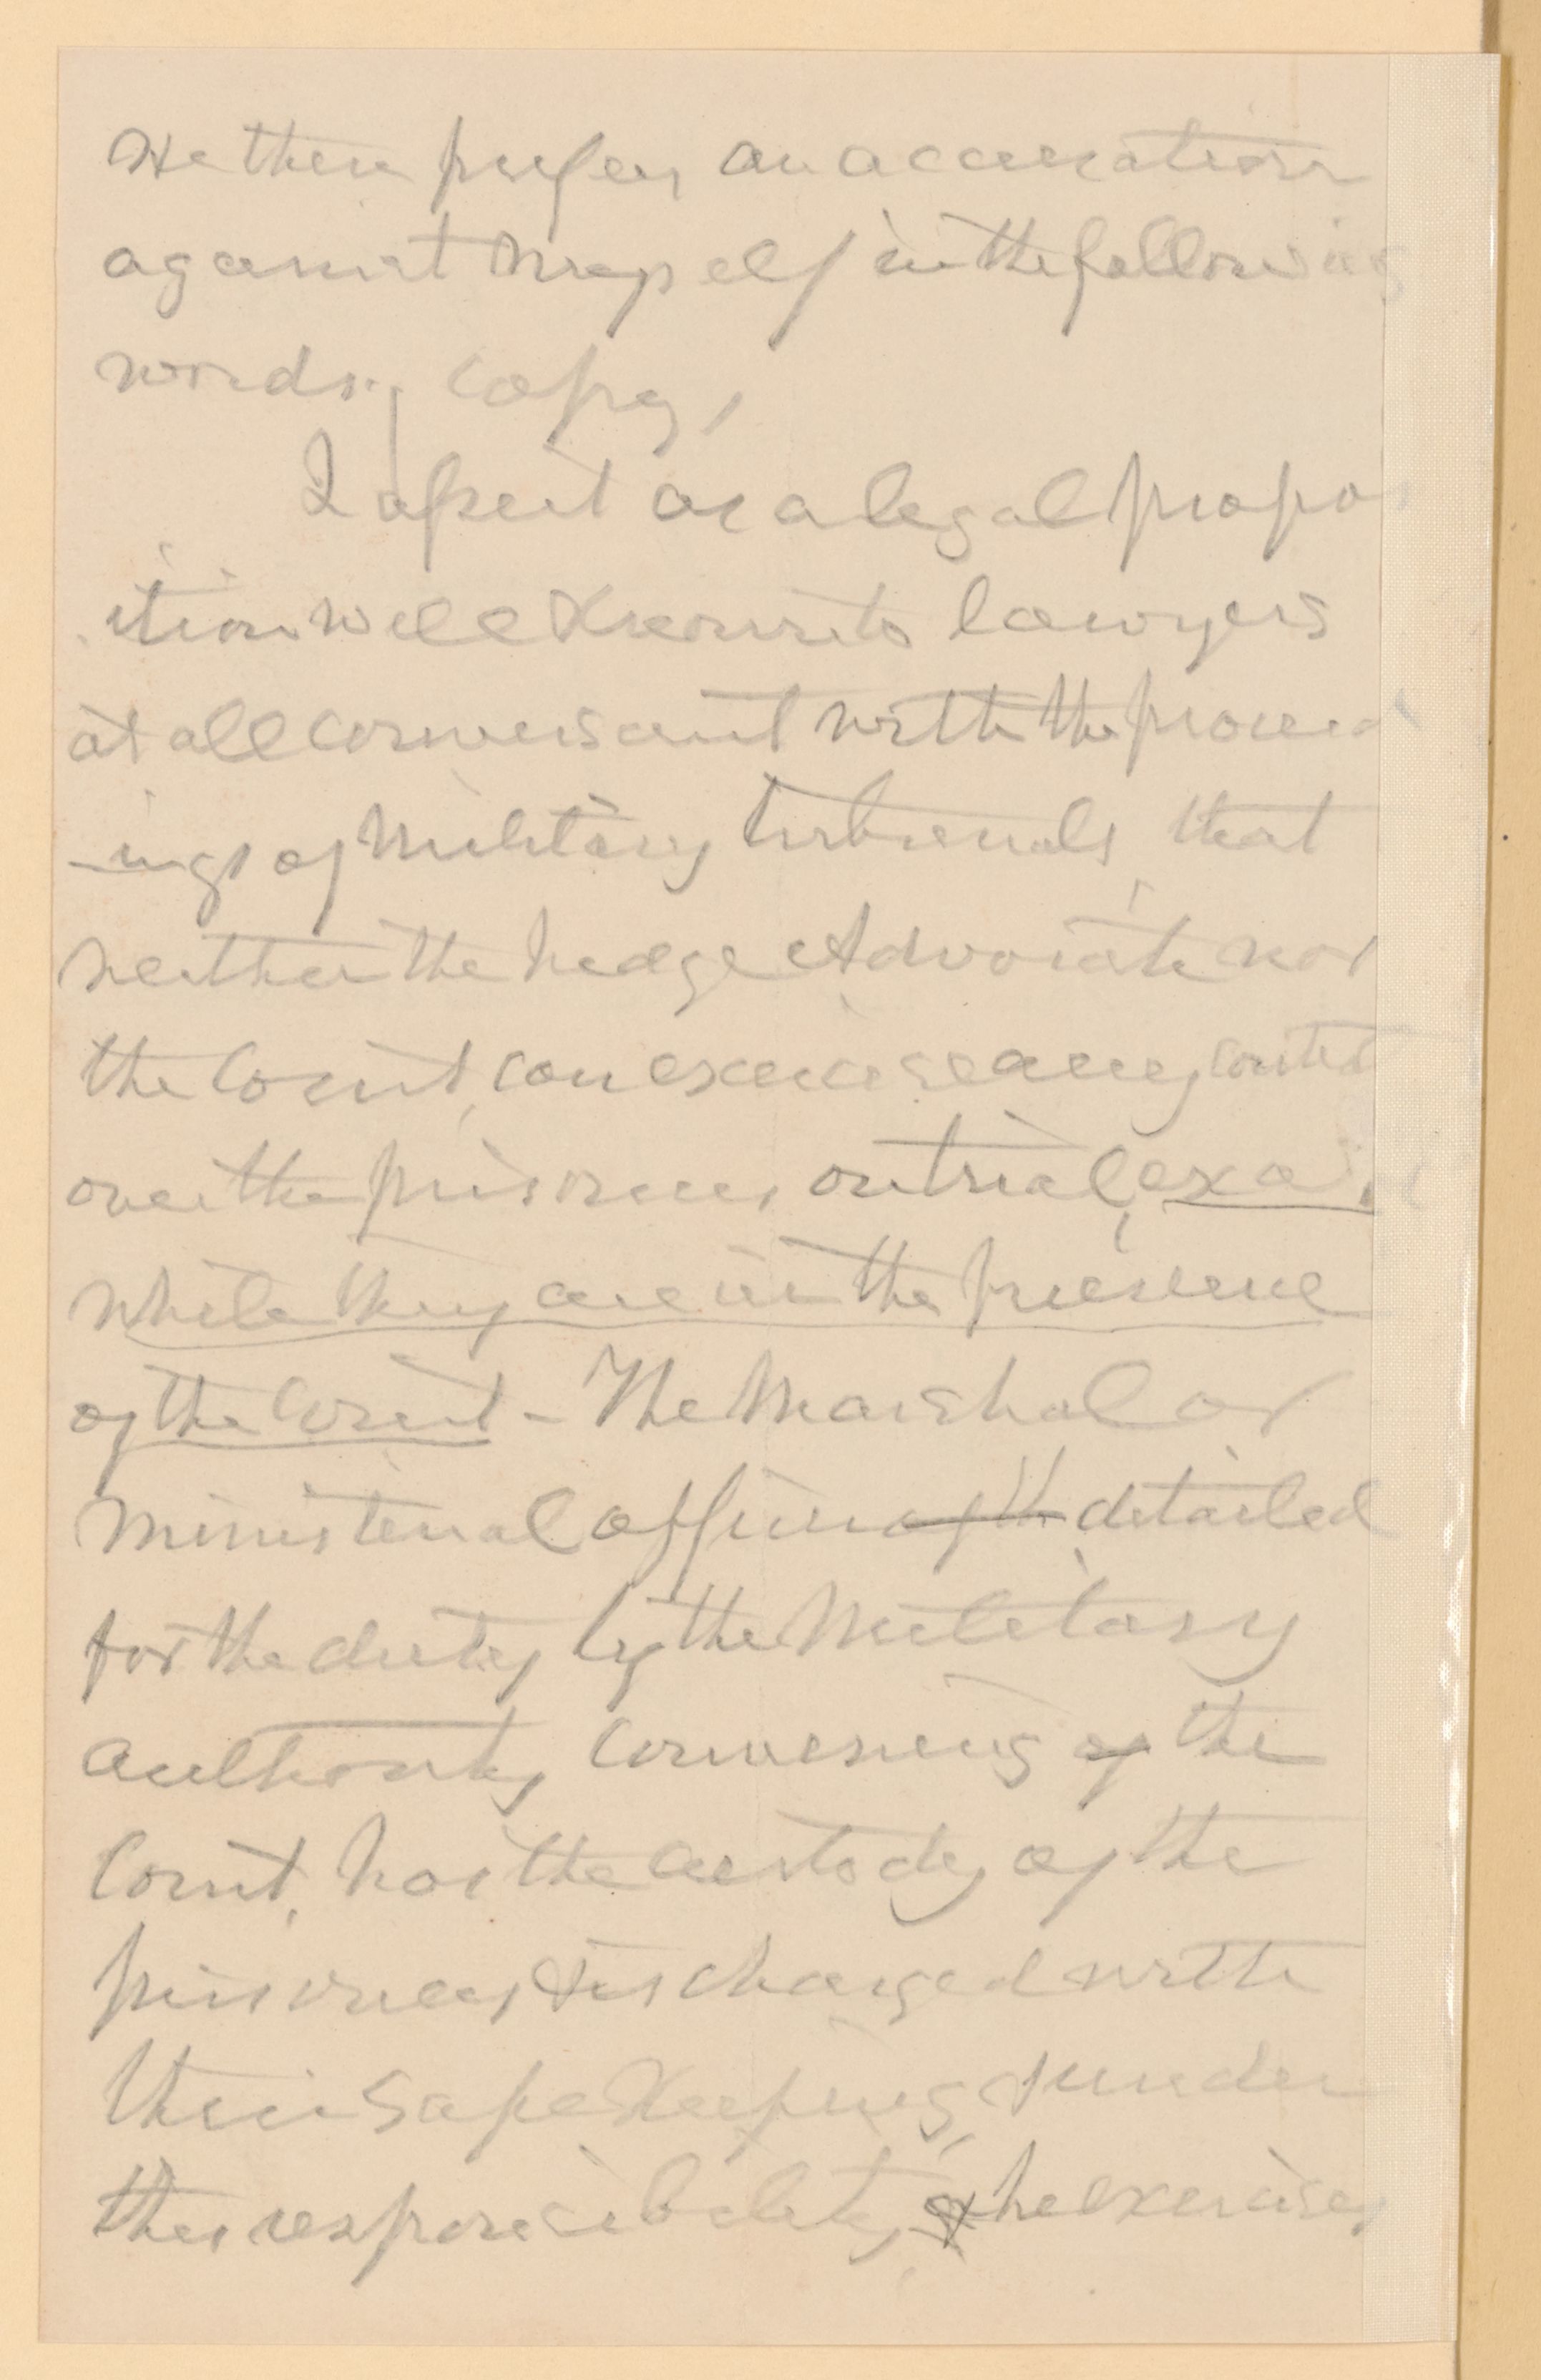 He then prefers an accusation
against myself in the following
words, copy,
I assert as a legal propo
ition well known to lawyers
at all conversant with the proceed
-ings of Military tribunals, that
neither the Judge Advocate nor
the Court, can exercise any control
over the prisoners on trial,
while they are in the presence
of the Court - The Marshal or
Ministerial officer of the detailed
for the duty by the Military
authority convening of the
Court, has the custody of the
prisoners, & is charged with
their safe Keeping, & under
this responsibility, & he exercises